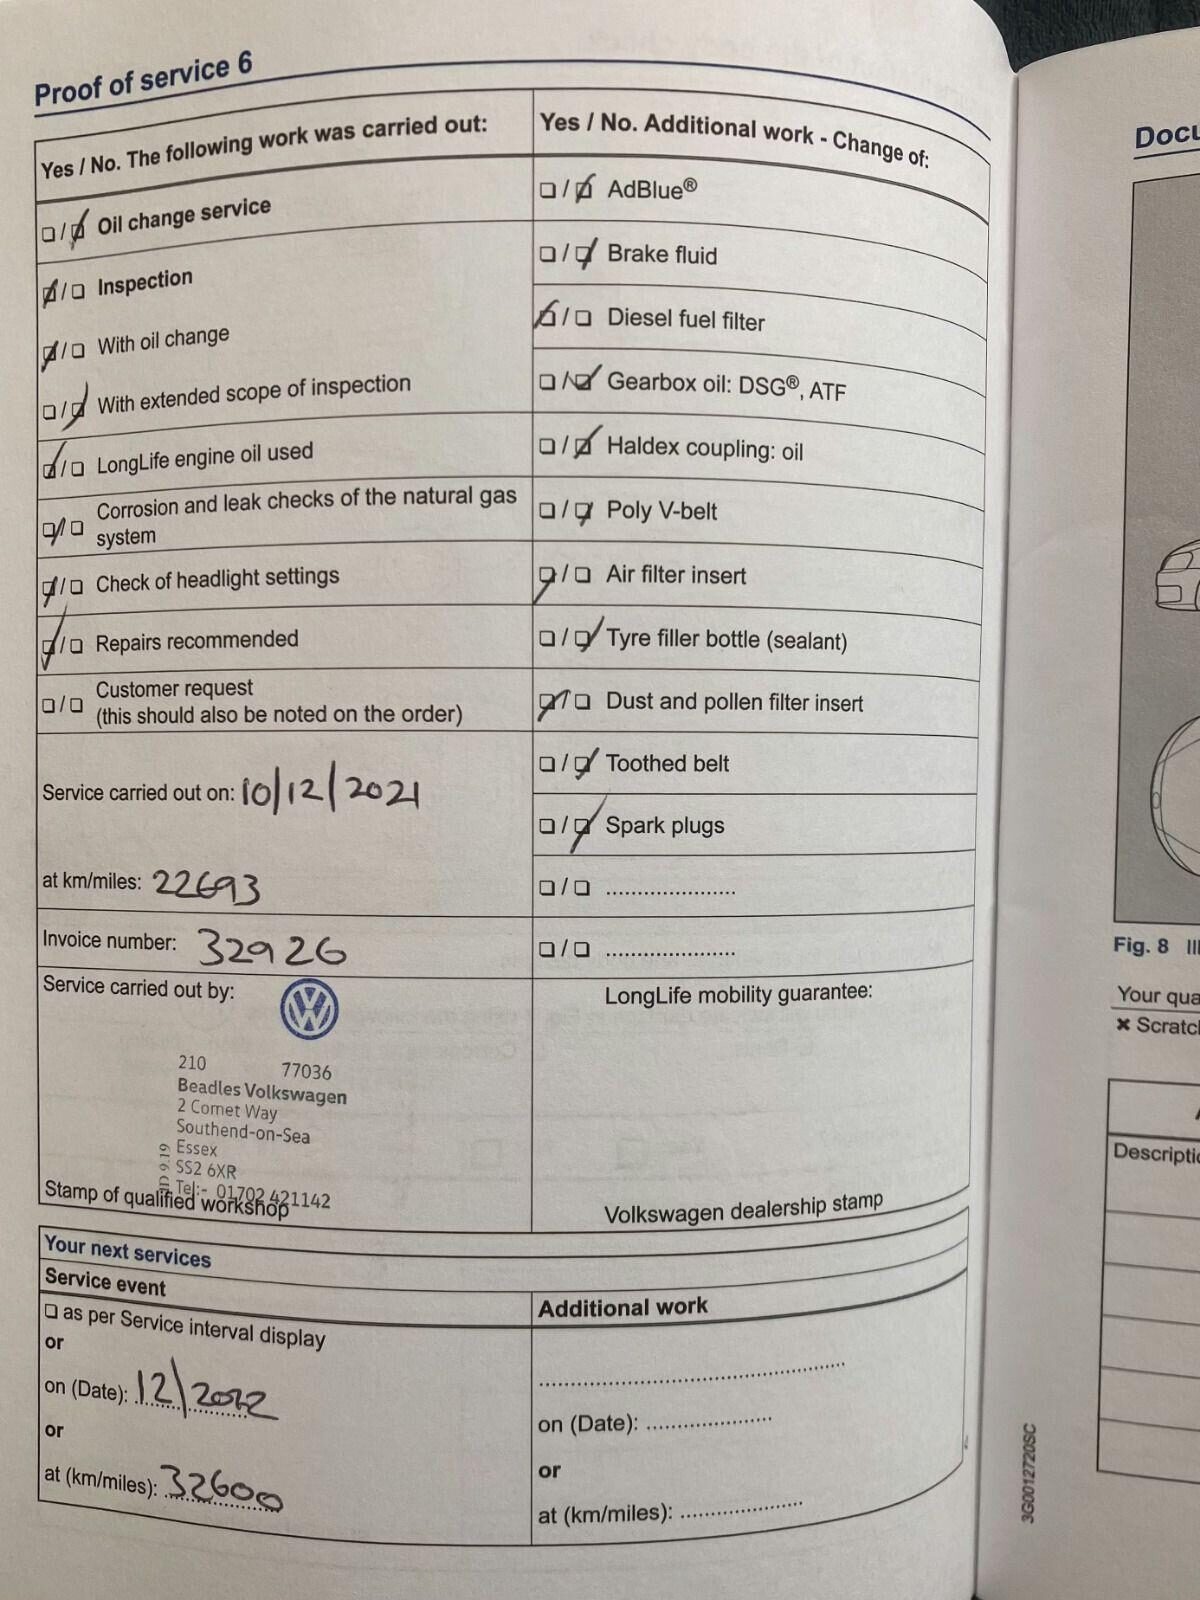 Proof of service 6
Yes / No. The following work was carried out:
❏ / ❏ Oil change service
❏ / ❏ Inspection
❏ / ❏ With oil change
❏ / ❏ With extended scope of inspection
❏ / ❏ LongLife engine oil used
❏ / ❏ Corrosion and leak checks of the natural gas
system
❏ / ❏ Check of headlight settings
❏ / ❏ Repairs recommended
❏ / ❏ Customer request
(this should also be noted on the order)
Service carried out on: 10/12/2021
at km/miles: 22693
Invoice number: 32926
Service carried out by:
VW
210 77036
Beadles Volkswagen
2 Comet Way
Southend-on-Sea
Essex
SS2 6XR
Tel:- 01702 421142
Stamp of qualified workshop
Yes / No. Additional work - Change of:
❏ / ❏ AdBlue®
❏ / ❏ Brake fluid
❏ / ❏ Diesel fuel filter
❏ / ❏ Gearbox oil: DSG®, ATF
❏ / ❏ Haldex coupling: oil
❏ / ❏ Poly V-belt
❏ / ❏ Air filter insert
❏ / ❏ Tyre filler bottle (sealant)
❏ / ❏ Dust and pollen filter insert
❏ / ❏ Toothed belt
❏ / ❏ Spark plugs
❏ / ❏ ......................
❏ / ❏ ......................
LongLife mobility guarantee:
Volkswagen dealership stamp
Your next services
Service event
❏ as per Service interval display
or
on (Date): 12/2022
or
at (km/miles): 32600
Additional work
on (Date): .....................
or
at (km/miles): .....................
3G0012720SC
Docu
Fig. 8
Your qua
× Scratch
Descriptio